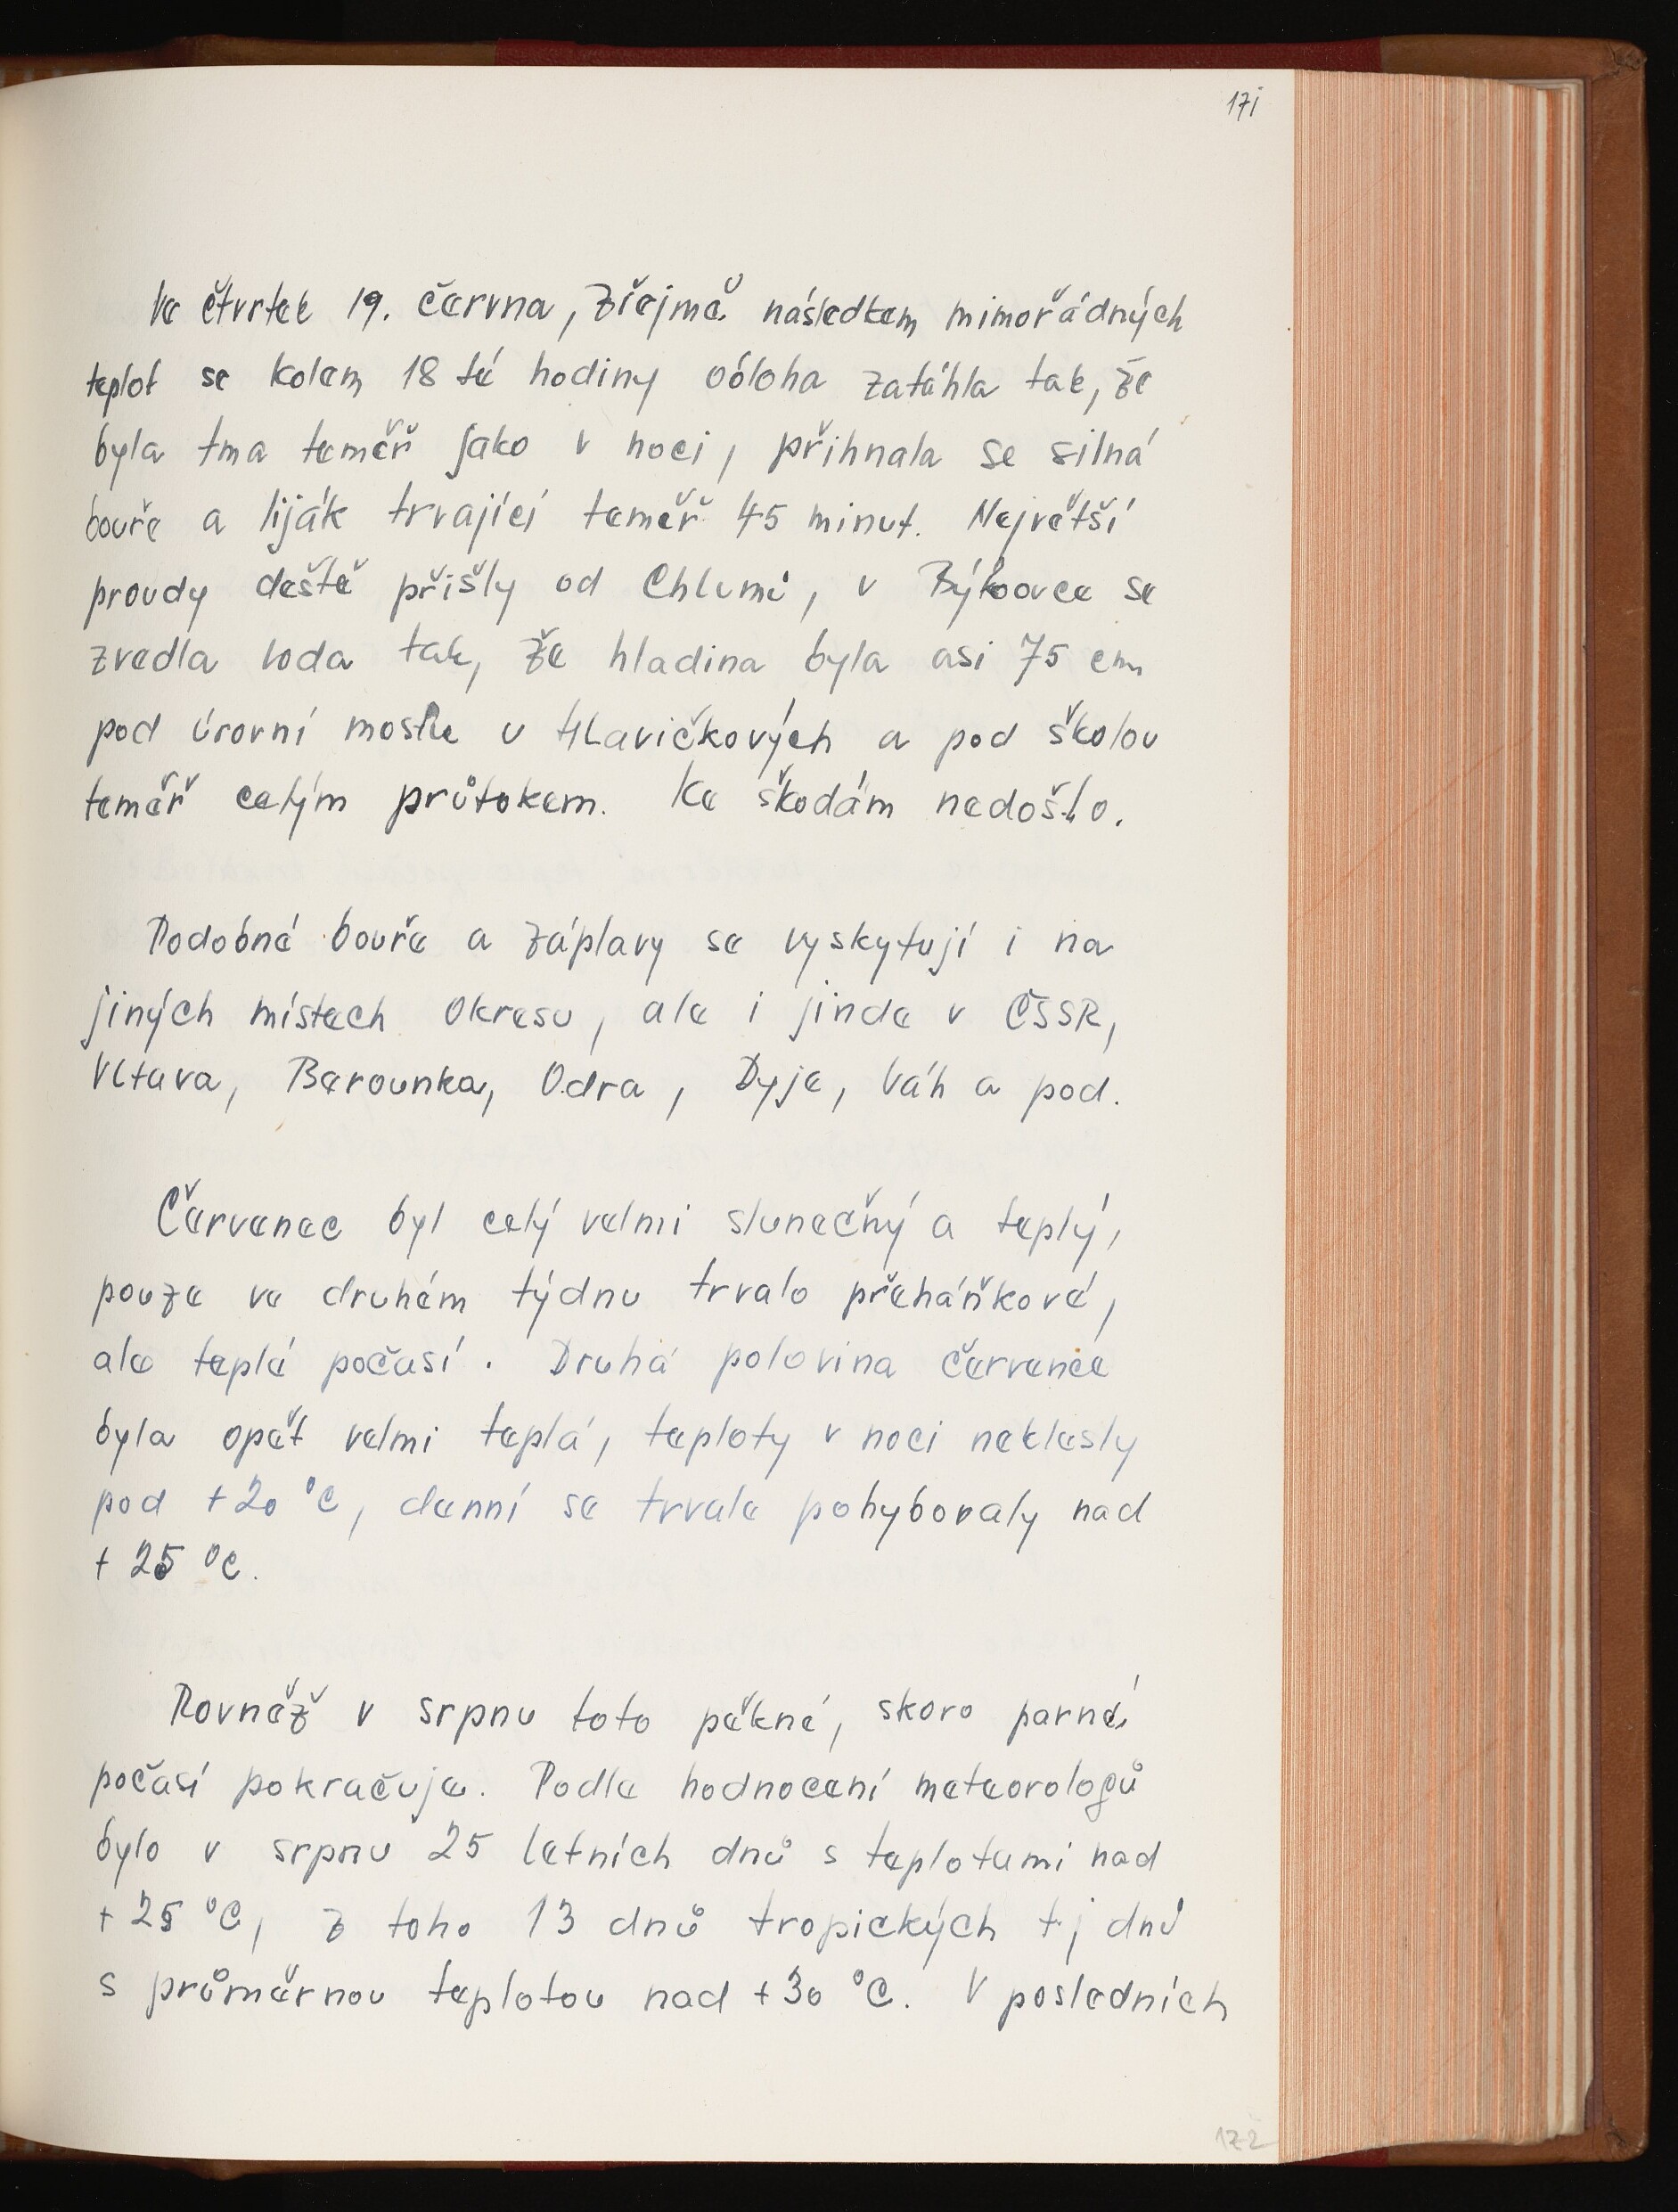 171
Ve čtvrtek 19. června, zřejmě následkem mimořádných
teplot se kolem 18 té hodiny obloha zatáhla tak, že
byla tma téměř jako v noci, přihnala se silná
bouře a liják trvající téměř 45 minut. Největší
proudy deště přišly od Chlumů, v Býkovce se
zvedla voda tak, že hladina byla asi 75 cm
pod úrovní mostu u Hlavičkových a pod školou
téměř celým průtokem. Ke škodám nedošlo.
Podobné bouře a záplavy se vyskytují i na
jiných místech okresu, ale i jinde v ČSSR,
Vltava, Berounka, Odra, Dyje, Váh a pod.
Červenec byl celý velmi slunečný a teplý,
pouze ve druhém týdnu trvalo přeháňkové,
ale teplé počasí. Druhá polovina července
byla opět velmi teplá, teploty v noci neklesly
pod +20 °C, denní se trvale pohybovaly nad
+25 °C.
Rovněž v srpnu toto pěkné, skoro parné
počasí pokračuje. Podle hodnocení meteorologů
bylo v srpnu 25 letních dnů s teplotami nad
+25 °C, z toho 13 dnů tropických tj dnů
s průměrnou teplotou nad +30 °C. V posledních
172